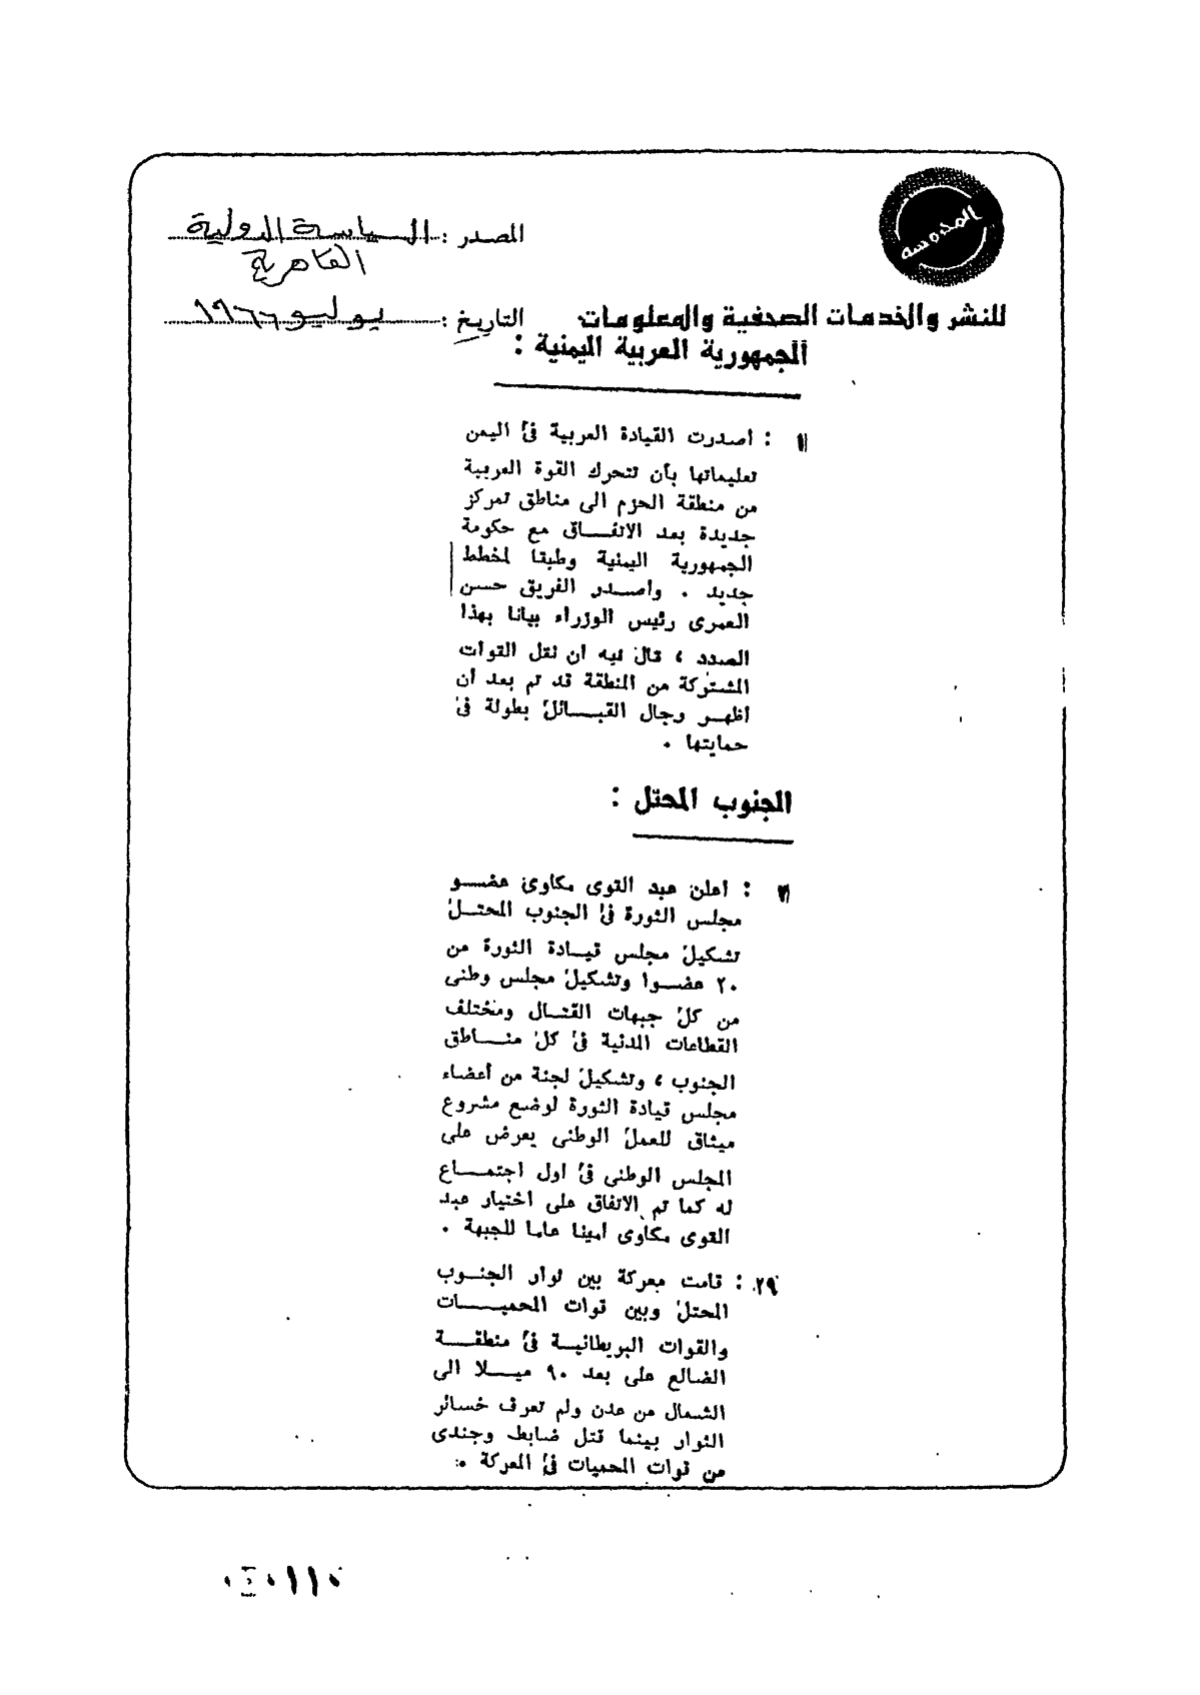 المحروسة
للنشر والخدمات الصحفية والمعلومات
المصدر : السياسة الدولية
القاهرية
التاريخ : يوليو ١٩٦٦
الجمهورية العربية اليمنية :
: أصدرت القيادة العربية فى اليمن
تعليماتها بأن تتحرك القوة العربية
من منطقة الحزم الى مناطق تمركز
جديدة بعد الاتفـــاق مع حكومة
الجمهورية اليمنية وطبقا لمخطط
جديد . وأصــدر الفريق حسن
العمرى رئيس الوزراء بيانا بهذا
الصدد ، قال فيه ان نقل القوات
المشتركة من المنطقة قد تم بعد أن
أظهـر رجال القبــائل بطولة فى
حمايتها .
الجنوب المحتل :
: أعلن عبد القوى مكاوى عضــو
مجلس الثورة فى الجنوب المحتــل
تشكيل مجلس قيـادة الثورة من
٢٠ عضــوا وتشكيل مجلس وطنى
من كل جبهات القتــال ومختلف
القطاعات المدنية فى كل منــاطق
الجنوب ، وتشكيل لجنة من أعضاء
مجلس قيادة الثورة لوضع مشروع
ميثاق للعمل الوطنى يعرض على
المجلس الوطنى فى اول اجتمــاع
له كما تم الاتفاق على اختيار عبد
القوى مكاوى أمينا عاما للجبهة .
٢٩ : قامت معركة بين ثوار الجنــوب
المحتل وبين قوات المحميــــات
والقوات البريطانيــة فى منطقــة
الضالع على بعد ٩٠ ميــلا الى
الشمال من عدن ولم تعرف خسائر
الثوار بينما قتل ضابط وجندى
من قوات المحميات فى المعركة .